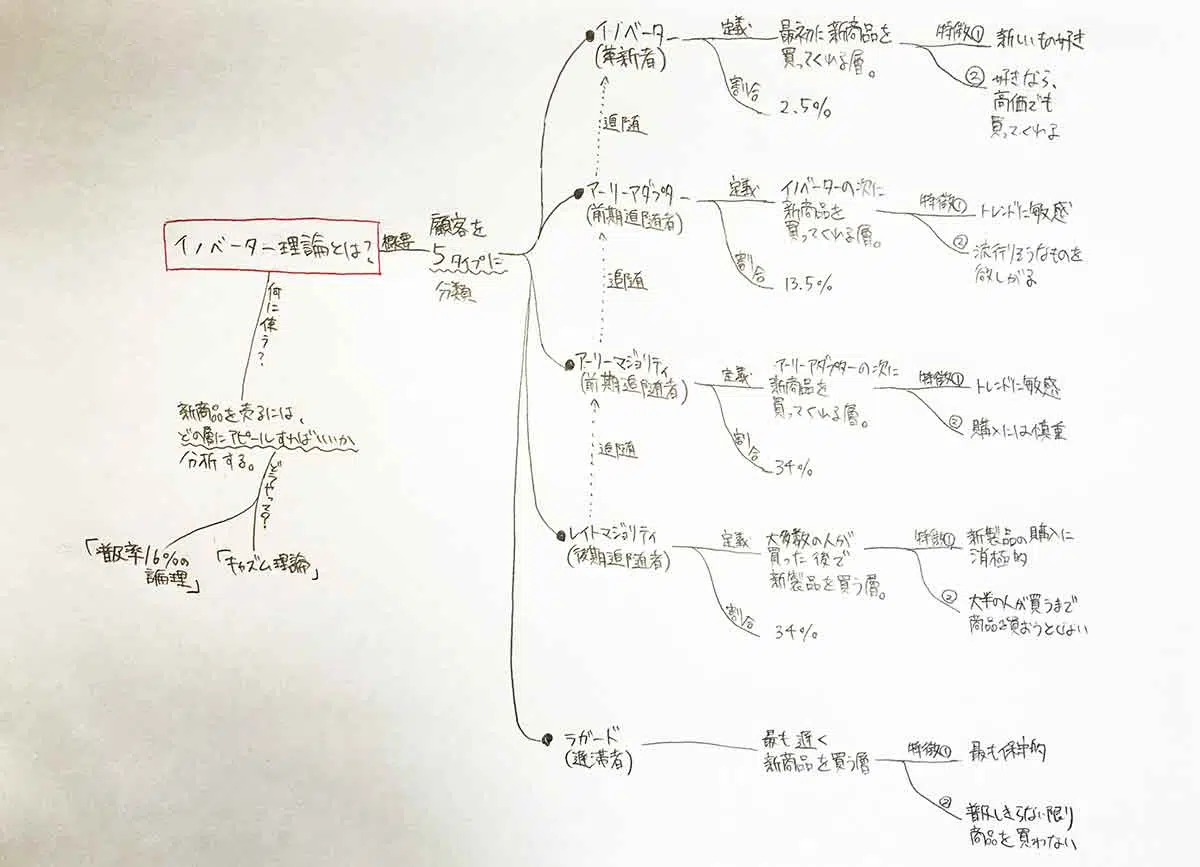 イノベーター理論とは?
概要
顧客を
5タイプに
分類
何に使う?
新商品を売るには、
どの層にアピールすればいいか
分析する。
どうやって?
「普及率16%の
論理」
「キャズム理論」
イノベータ
(革新者)
定義
最初に新商品を
買ってくれる層。
割合
2.5%
特徴①
新しいもの好き
②
好きなら、
高価でも
買ってくれる
追随
アーリーアダプター
(前期追随者)
定義
イノベーターの次に
新商品を
買ってくれる層。
割合
13.5%
特徴①
トレンドに敏感
②
流行りそうなものを
欲しがる
追随
アーリーマジョリティ
(前期追随者)
定義
アーリーアダプターの次に
新商品を
買ってくれる層。
割合
34%
特徴①
トレンドに敏感
②
購入には慎重
追随
レイトマジョリティ
(後期追随者)
定義
大多数の人が
買った後で
新製品を買う層。
割合
34%
特徴①
新製品の購入に
消極的
②
大半の人が買うまで
商品を買おうとしない
ラガード
(遅滞者)
最も遅く
新商品を買う層
特徴①
最も保守的
②
普及しきらない限り
商品を買わない